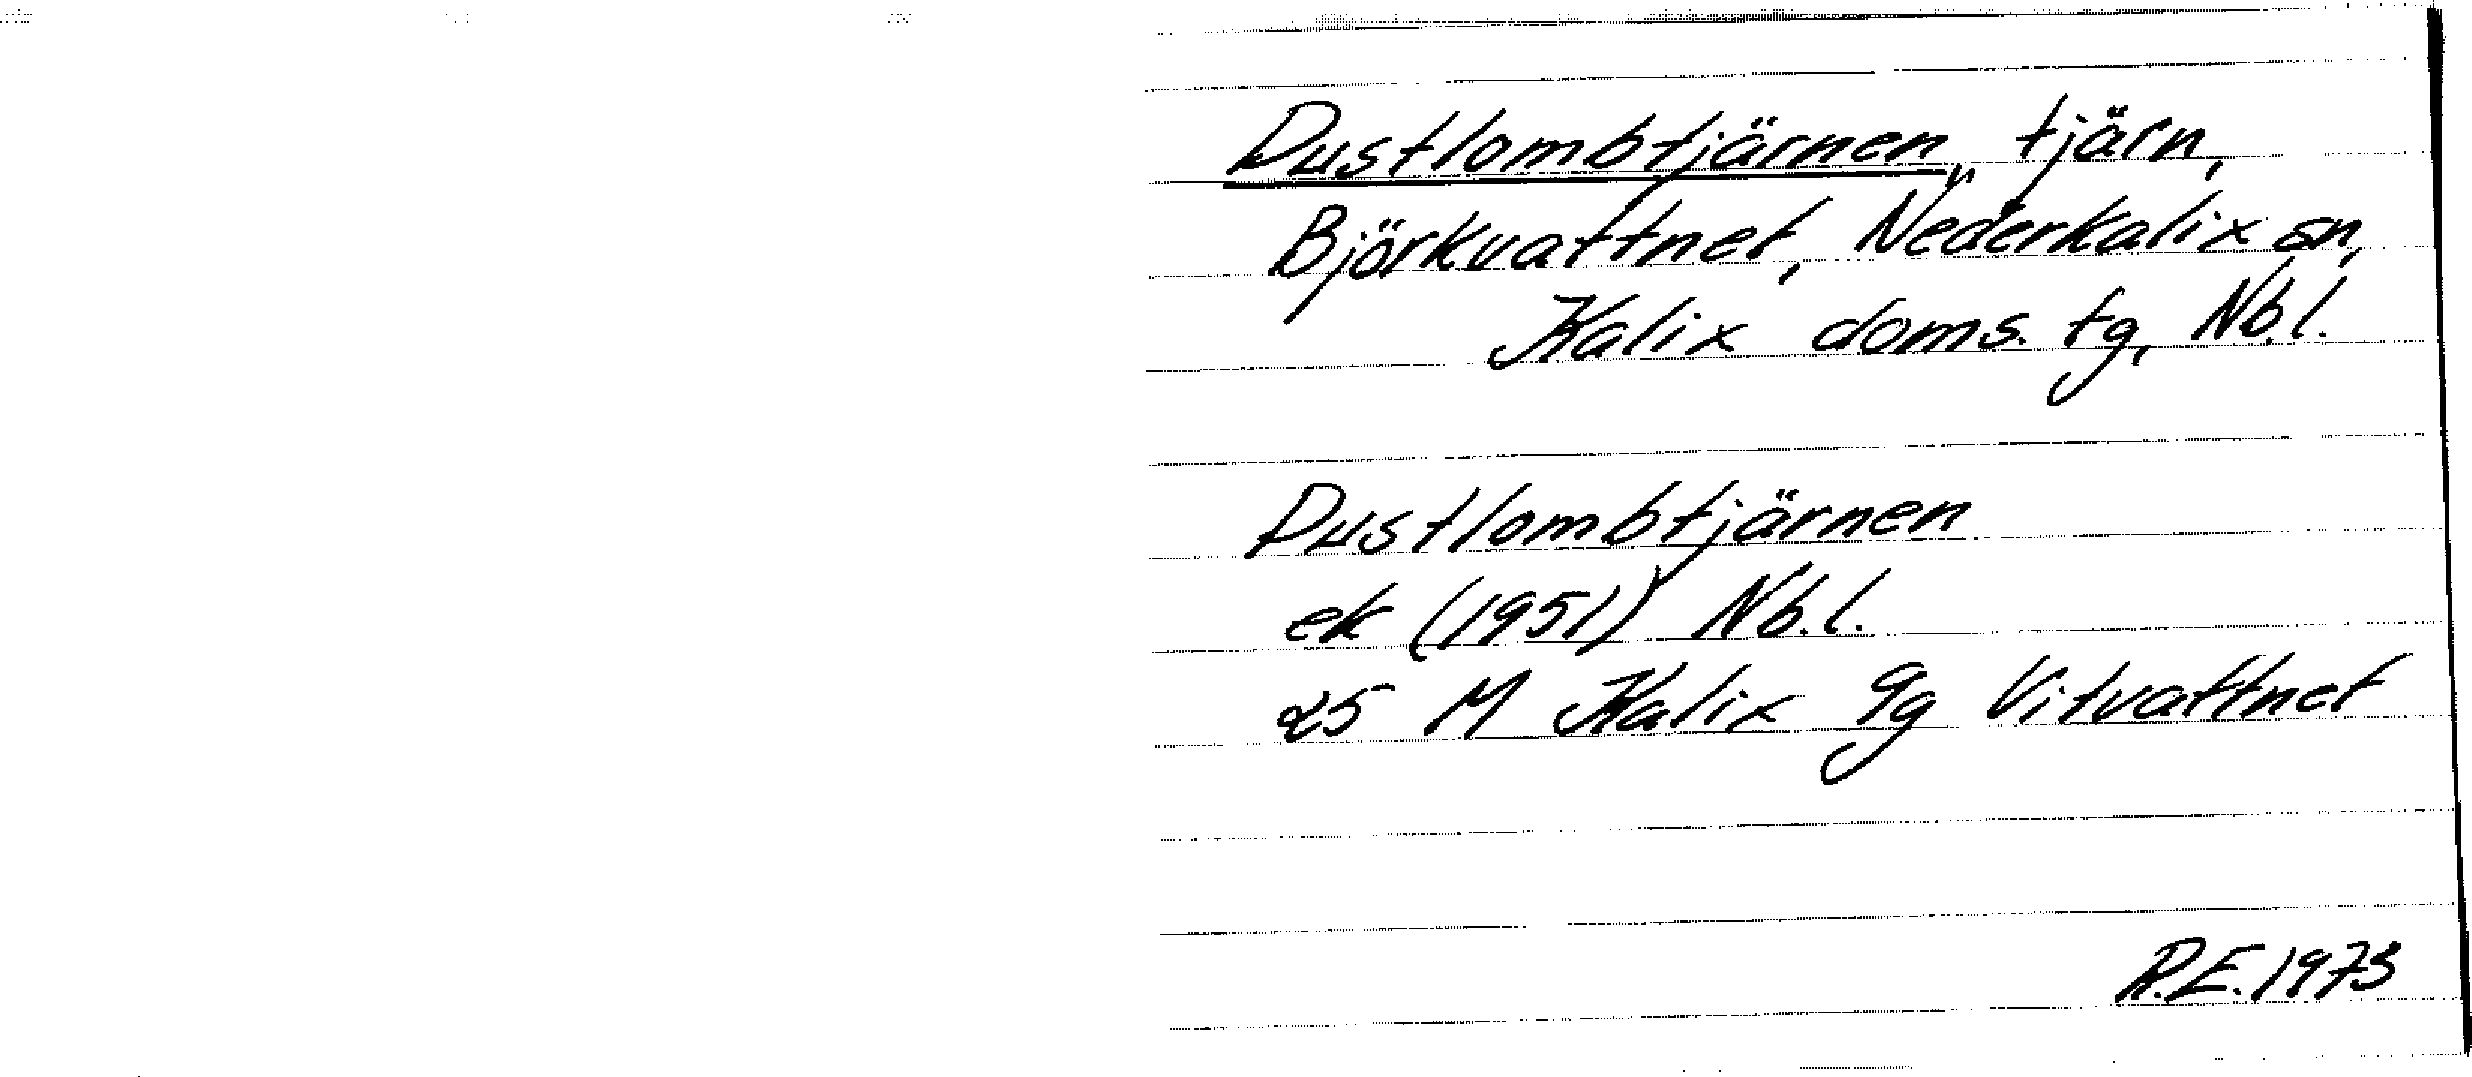 Dustlombtjärnen, tjärn,
Björkvattnet, Nederkalix sn,
Kalix doms. tg, Nb.l.
Dustlombtjärnen
ek (1951) Nb.l.
25 M Kalix 9g Vitvattnet
R.E. 1973